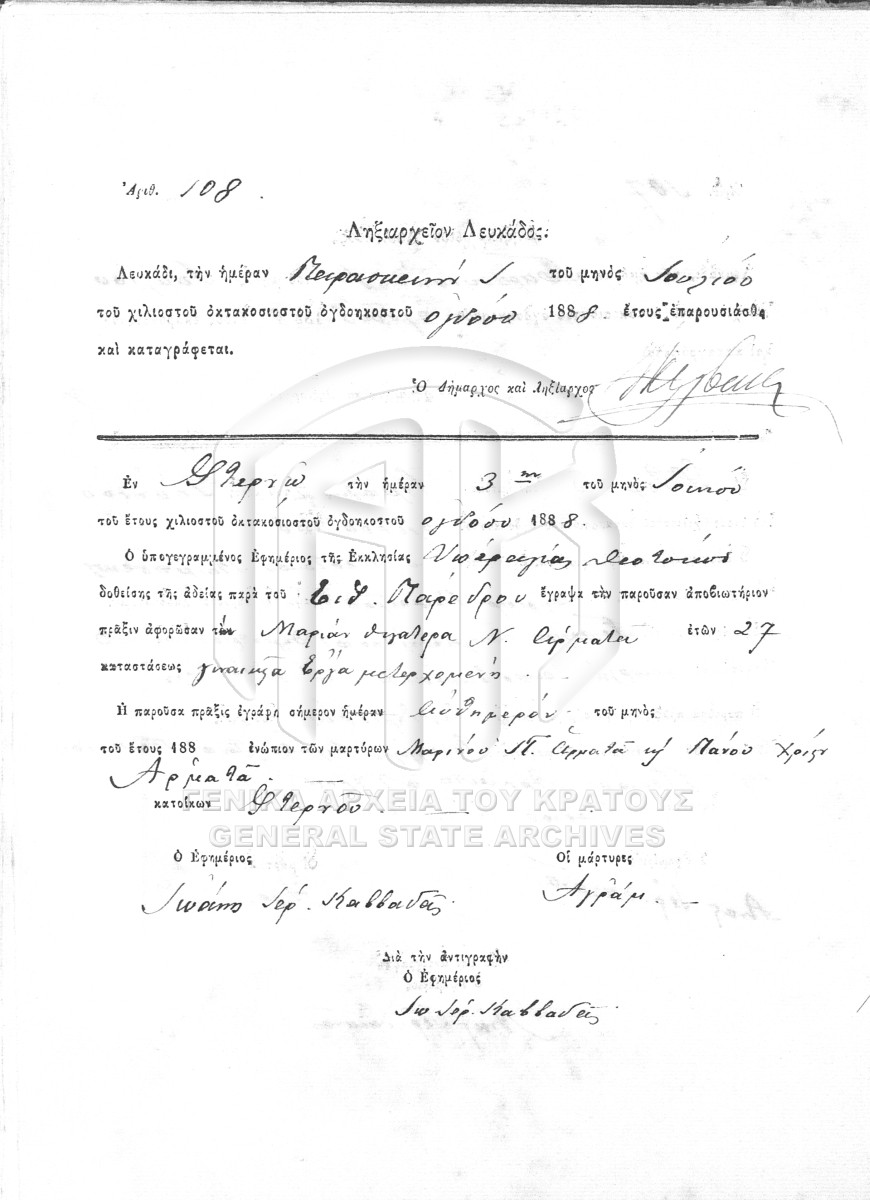 Ἀριθ. 108.
Ληξιαρχεῖον Λευκάδος.
Λευκάδι, τὴν ἡμέραν Παρασκευή τοῦ μηνὸς Ἰουλίου
τοῦ χιλιοστοῦ ὀκτακοσιοστοῦ ὀγδοηκοστοῦ ὀγδόου 1888. ἔτους ἐπαρουσιάσθη
καὶ καταγράφεται.
Ὁ Δήμαρχος καὶ Ληξίαρχος
Ἐν Φτερνῷ τὴν ἡμέραν 3ην τοῦ μηνὸς
τοῦ ἔτους χιλιοστοῦ ὀκτακοσιοστοῦ ὀγδοηκοστοῦ ὀγδόου 1888.
Ὁ ὑπογεγραμμένος Ἐφημέριος τῆς Ἐκκλησίας Ὑπεραγίας Θεοτόκου
δοθείσης τῆς ἀδείας παρὰ τοῦ Εἰδ. Παρέδρου ἔγραψα τὴν παροῦσαν ἀποβιωτήριον
πρᾶξιν ἀφορῶσαν τὴν Μαρίαν θυγατέρα Ν. Αρματᾶ ἐτῶν 27
καταστάσεως γυναικεῖα Ἔργα μετερχομένη.
Ἡ παροῦσα πρᾶξις ἐγράφη σήμερον ἡμέραν αὐθημερόν τοῦ μηνὸς
τοῦ ἔτους 188 ἐνώπιον τῶν μαρτύρων Μαρίνου Π. Αρματᾶ κ Πάνου
Αρματᾶ.
κατοίκων Φτερνοῦ.
ΓΕΝΙΚΑ ΑΡΧΕΙΑ ΤΟΥ ΚΡΑΤΟΥΣ
GENERAL STATE ARCHIVES
Ὁ Ἐφημέριος Οἱ μάρτυρες
Ἰωάνης Ἱερ. Καββαδᾶς. Ἀγράμ.
Διὰ τὴν ἀντιγραφὴν
Ὁ Ἐφημέριος
Ἰω Ἱερ. Καββαδᾶς